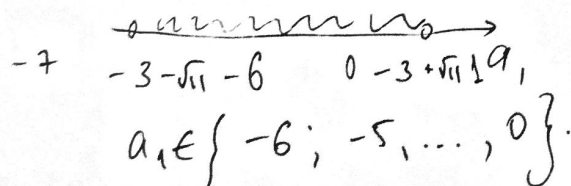 -7 -3-√11 -6 0 -3+√11 1 a₁
a₁ ∈ { -6; -5, ..., 0 }.